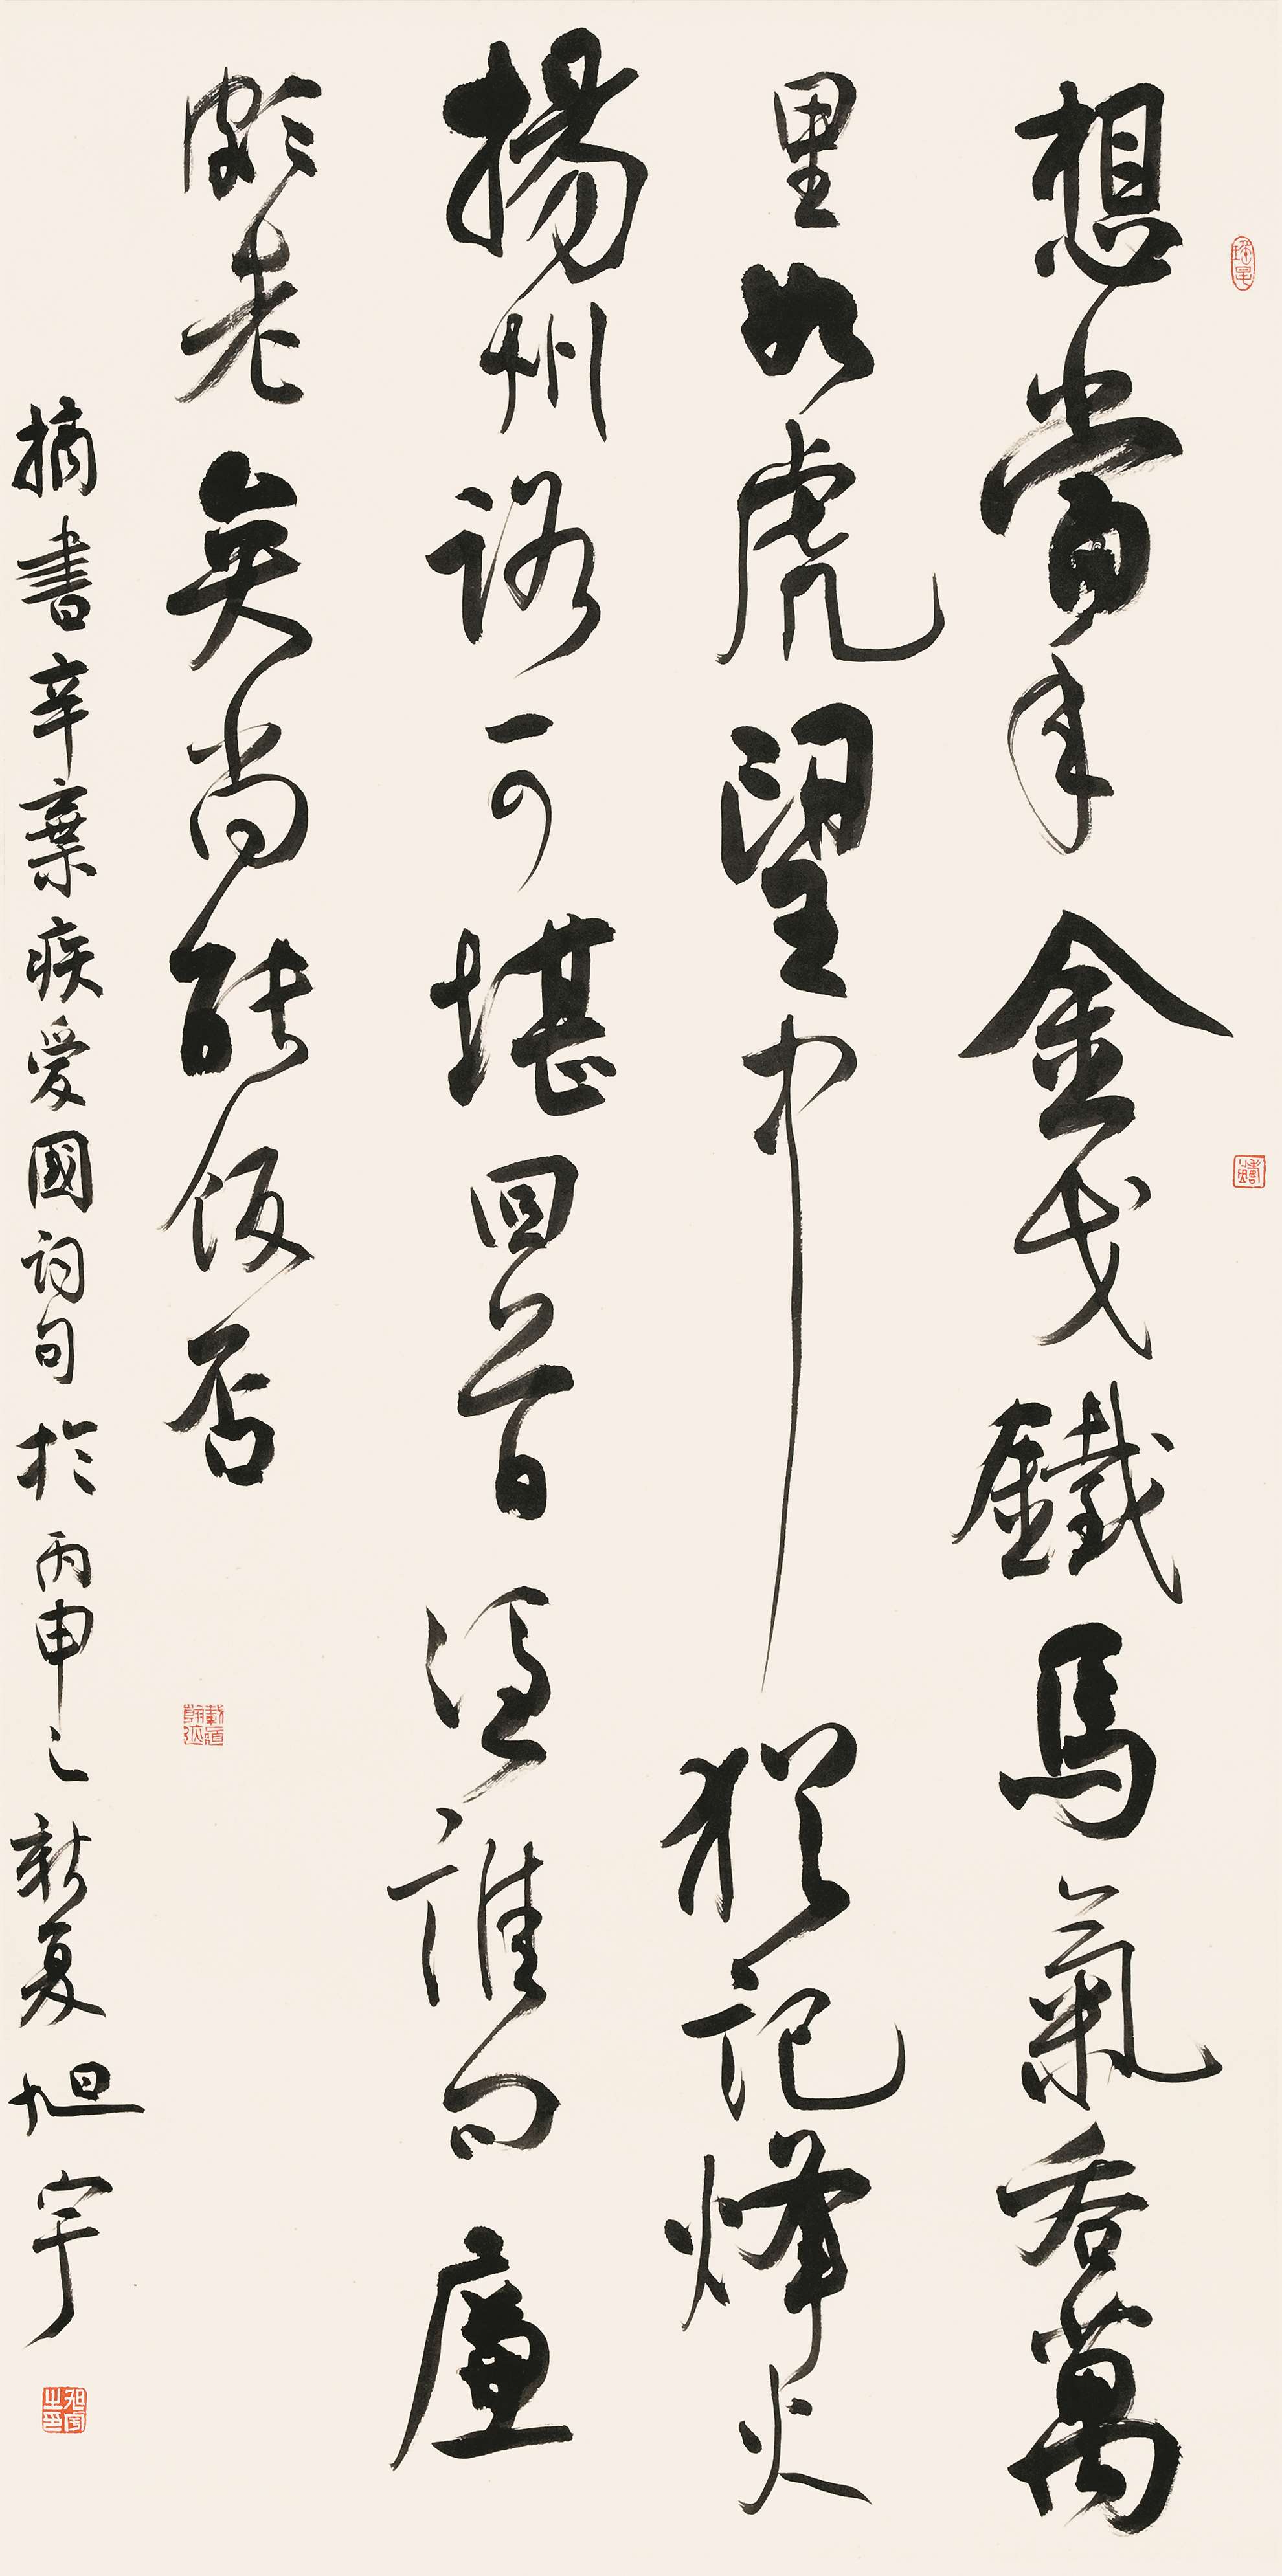 想當年金戈鐵馬氣吞萬
里如虎望中猶記烽火
揚州路可堪回首憑誰問廉
頗老矣尚能飯否
摘書辛棄疾愛國詞句於丙申之新夏旭宇
旭宇之印